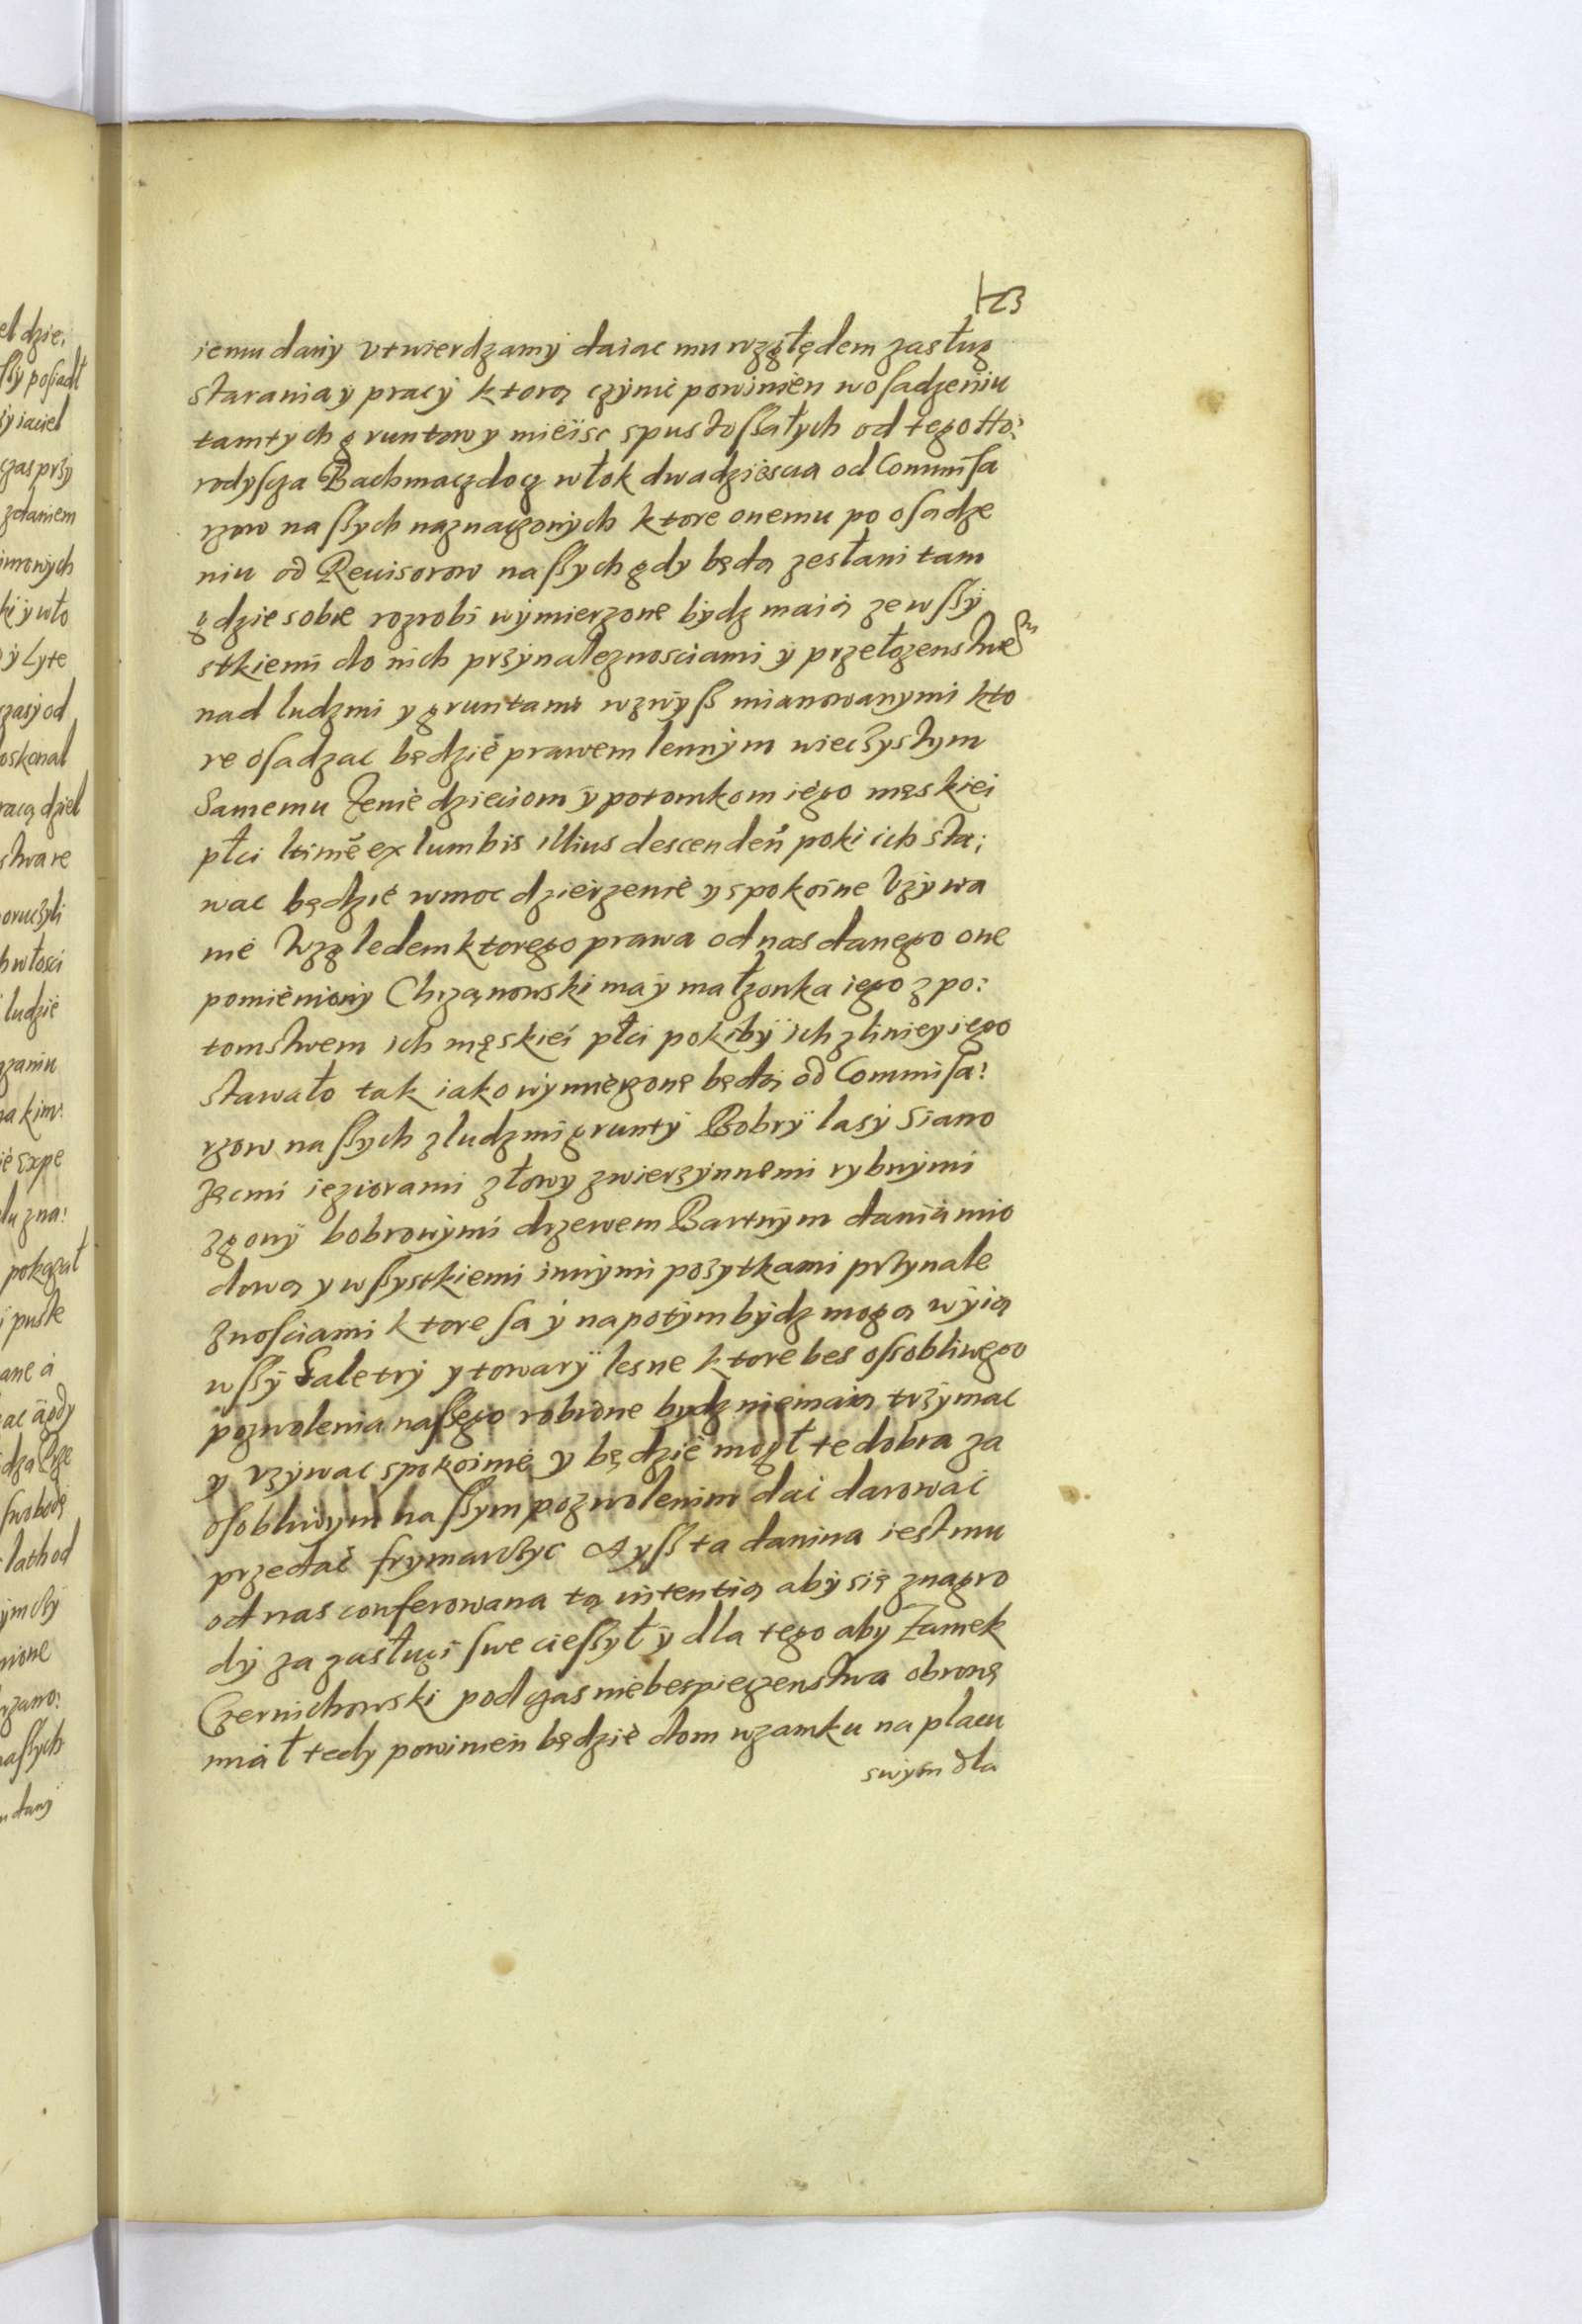 iemu dany vtwierdzamy daiac mu względem zasług
starania y pracy ktorą czynic powinien w osadzeniu
tamtych gruntow y mieisc spustoſzałych od tego Ho:
rodyſcza Bachmaczdocz włok dwadziescia od Commiſa
rzow naſzych naznaczonych ktore onemu po oſadze
niu od Reuisorow naſzych gdy będą zesłani tam
gdzie sobie rozrobi wymierzone bydz maią ze wſzy
stkiemi do nich przynaleznosciami y przełozenstwem
nad ludzmi y gruntami wzwyſz mianowanymi kto
re oſadzac będzie prawem lennym wieczystym
Samemu Zenie dzieciom y potomkom iego męskiei
płci ltimē ex lumbis illius descendeń poki ich sta:
wac będzie w moc dzierzenie y spokoine Vzywa
nie Względem ktorego prawa od nas danego one
pomieniony Chrzanowski ma y małzonka iego z po:
tomstwem ich męskiei płci poki by ich z liniey iego
stawało tak iako wymierzone będą od Commiſa:
rzow naſzych z ludzmi grunty Bobry lasy Siano
Zęcmi ieziorami z łowy zwierzynnemi rybnymi
zgony bobrowymi drzewem Bartnym danią mio
dową y wſzystkiemi innymi pozytkami przynale
znoſciami ktore ſa y napotym bydz mogą wyią
wſzy Saletry y towary lesne ktore bes oſsobliwego
pozwolenia naſzego robione bydz niemaią trzymac
y vzywac spokoinie y będzie mogł te dobra za
oſobliwym naſzym pozwolenim dac darowac
przedac frymarczyc A yſz ta danina iest mu
od nas conferowana tą intentią aby się znagro
dy za zasługi ſwe cieſzył y dla tego aby Zamek
Czernichowski pod czas niebespieczenstwa obronę
miał tedy powinien będzie dom w zamku na placu
swym dla